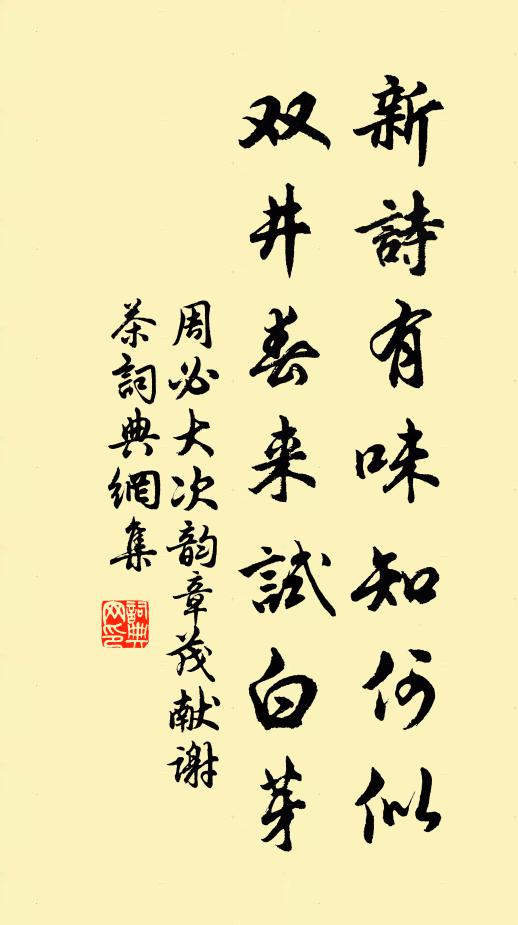 新詩有味知何似
双井春来試白芽
周必大次韵章茂献谢
茶詞典網集
詞典
网印